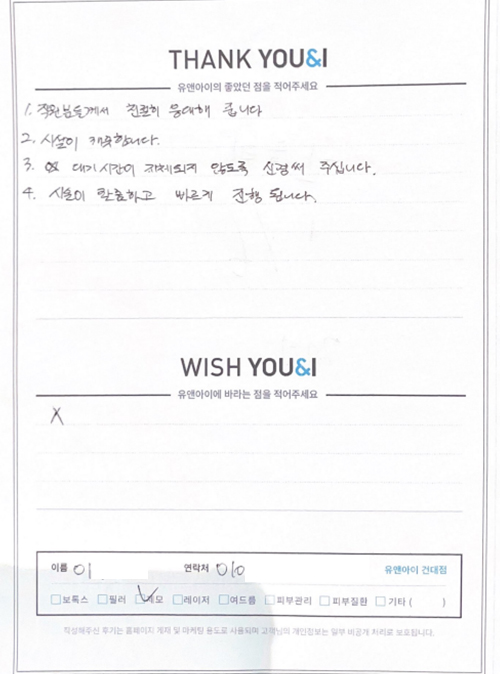 THANK YOU&I
유앤아이의 좋았던 점을 적어주세요
1. 직원분들께서 친절히 응대해 줍니다
2. 시설이 깨끗합니다.
3. 대기시간이 지체되지 않도록 신경써 주십니다.
4. 시술이 꼼꼼하고 빠르게 진행 됩니다.
WISH YOU&I
유앤아이에 바라는 점을 적어주세요
X
이름 이 연락처 010 유앤아이 건대점
보톡스 필러 제모 레이저 여드름 피부관리 피부질환 기타 ( )
작성해주신 후기는 홈페이지 게재 및 마케팅 용도로 사용되며 고객님의 개인정보는 일부 비공개 처리로 보호됩니다.